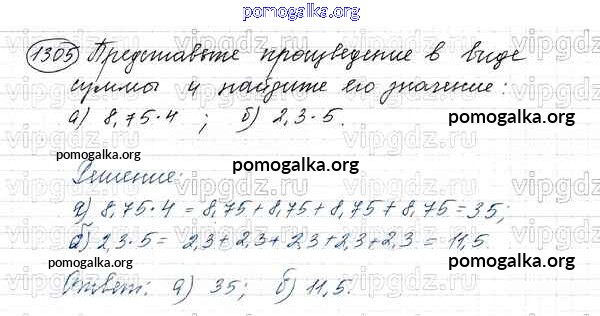 pomogalka.org
1305 Представьте произведение в виде
суммы и найдите его значение:
а) 8,75·4 ; б) 2,3·5.
pomogalka.org
pomogalka.org
Решение:
а) 8,75·4 = 8,75+8,75+8,75+8,75=35;
б) 2,3·5= 2,3+2,3+2,3+2,3+2,3 = 11,5.
pomogalka.org
pomogalka.org
Ответ: а) 35; б) 11,5.